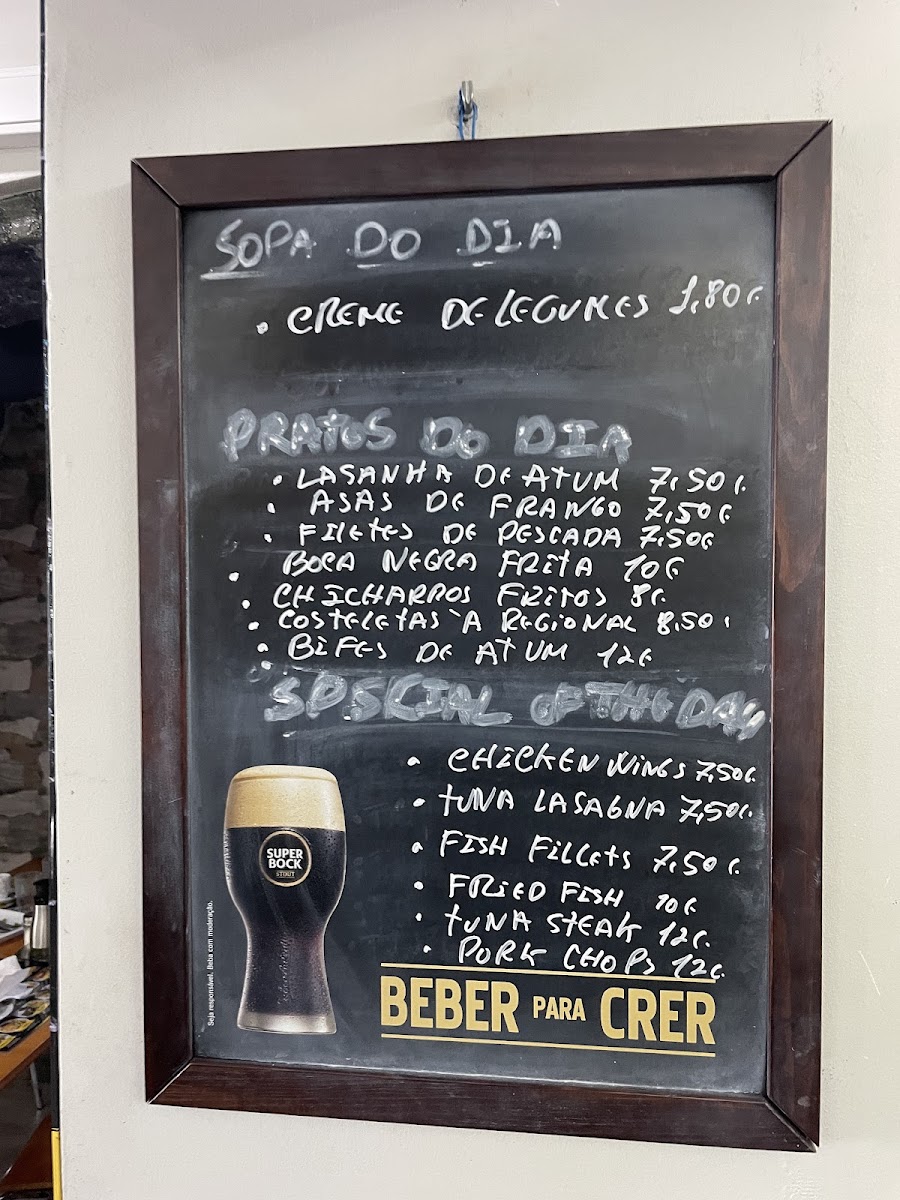 SOPA DO DIA
• CREME DE LEGUMES 1,80€
PRATOS DO DIA
• LASANHA DE ATUM 7,50€
• ASAS DE FRANGO 7,50€
• FILETES DE PESCADA 7,50€
• BOCA NEGRA FRITA 10€
• CHICHARROS FRITOS 8€
• COSTELETAS À REGIONAL 8,50€
• BIFES DE ATUM 12€
SPSCIAL OF THE DAY
• CHICKEN WINGS 7,50€
• TUNA LASAGNA 7,50€
• FISH FILLETS 7,50€
• FRIED FISH 10€
• TUNA STEAK 12€
• PORK CHOPS 12€
SUPER
BOCK
STOUT
Seja responsável. Beba com moderação.
BEBER PARA CRER